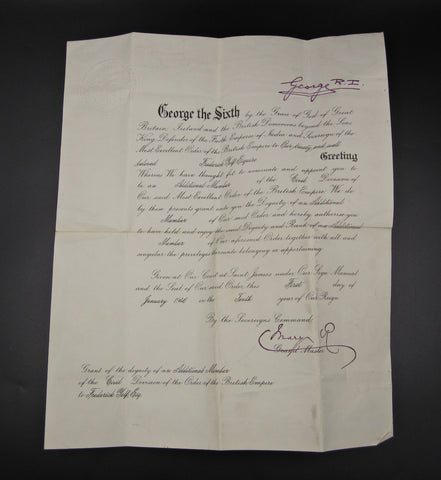 George R.I.
George the Sixth by the Grace of God of Great
Britain, Ireland and the British Dominions beyond the Seas
King, Defender of the Faith, Emperor of India and Sovereign of the
Most Excellent Order of the British Empire to Our trusty and well
beloved Frederick Esquire
Greeting
Whereas We have thought fit to nominate and appoint you to
be an Additional Member of the Civil Division of
Our said Most Excellent Order of the British Empire We do
by these presents grant unto you the Dignity of an Additional
Member of Our said Order and hereby authorise you
to have hold and enjoy the said Dignity and Rank of an Additional
Member of Our aforesaid Order together with all and
singular the privileges thereunto belonging or appertaining.
Given at Our Court at Saint James's under Our Sign Manual
and the Seal of Our said Order this First day of
January 1946 in the Tenth year of Our Reign.
By the Sovereign's Command.
Mary R
Grand Master
Grant of the dignity of an Additional Member
of the Civil Division of the Order of the British Empire
to Frederick Esq.